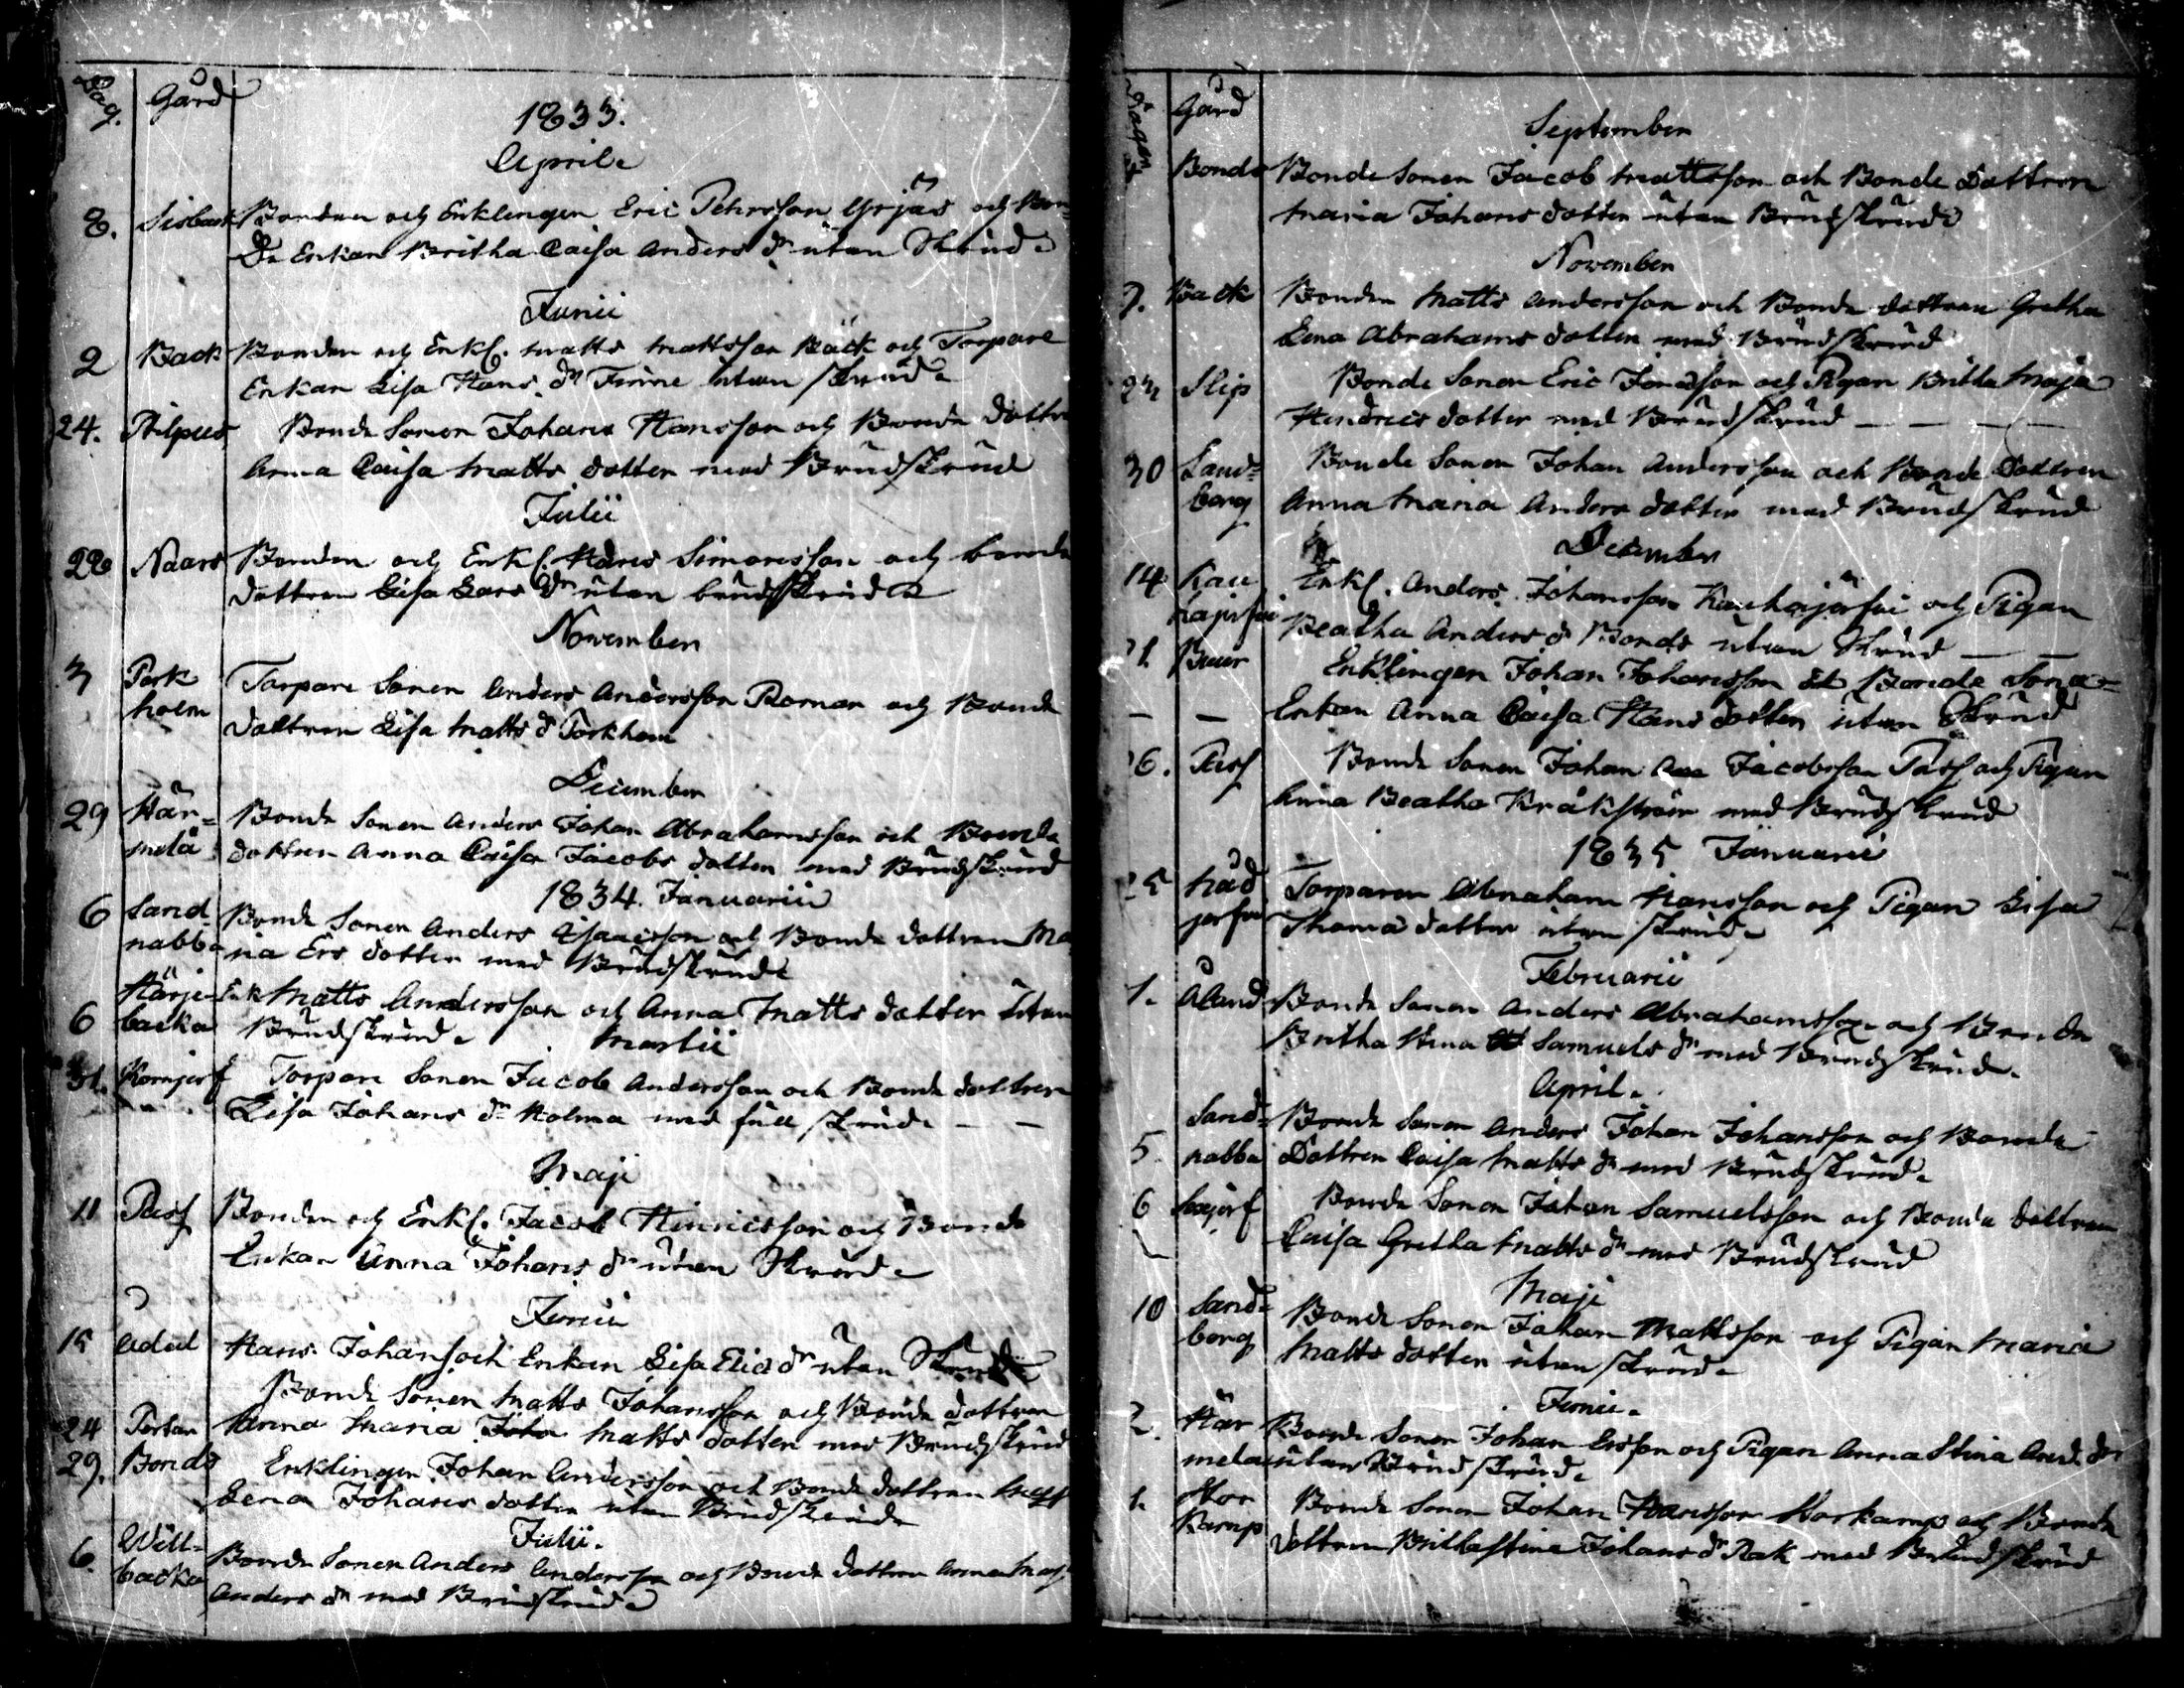 Dag. Gård
1833.
April.
8. Sisback Bonden och Enklingen Eric Pehrsson Grjäs och Bon-
De Enkan Britha Caisa Anders dr utan Skrud
Junii
2 Back Bonden och Enkl. Matts Mattsson Bäck och Torpare
Enkan Lisa Hans dr Finne utan skrud
24. Philpus Bonde Sonen Johans Hansson och Bonde Dottr
Anna Caisa Matts dotter med Brudskrud
Julii
28 Naars Bonden och Enkl. Hans Simonsson och bonde
dottren Lisa Lars dr utan brudskrud
November
3 Pork
holm Torpare Sonen Anders Andersson Roman och Bonde
dottren Lisa Matts dr Porkholm
December
29 Här-
mälä Bonde Sonen Anders Johan Abrahamsson och Bonde
dottren Anna Caisa Jacobs dotter med Brudskrud
1834. Januarii
6 Sand
nabba Bonde Sonen Anders Isacsson och Bonde dottren Ma
ria Ers dotter med Brudskrud
Härje- Enk Matts Andersson och Anna Matts dotter utan
6 backa Brudskrud
Martii
31. Kornjerf Torpare Sonen Jacob Andersson och Bonde dottren
Lisa Johans dr Holma med full skrud
Maji
11 Pass Bonden och Enkl. Jacob Hinricsson och Bonde
Enkan Anna Johans dr utan Skrud
Junii
15 Adul Hans Johans och Enkan Lisa Elias dr utan Skrud
Bonde Sonen Matts Johansson och Bonde dottren
24 Portan Anna Maria Joha Matts dotter med Brudskrud
29. Bonds Enklingen Johan Andersson och Bonde dottren
Lena Johans dotter utan Brudskrud
Julii.
6. Will-
backa Bonde Sonen Anders Andersson och Bonde dottren Anna Maj
Anders dr med Brudskrud
Dagen Gård
September
Bonds Bonde Sonen Jacob Mattsson och Bonde Dottren
Maria Johans dotter utan Brudskrud
November
9. Back Bonden Matts Andersson och Bonde dottren Gretha
Lena Abrahams dotter med Brudskrud
23 Slip Bonde Sonen Eric Jonasson och Pigan Britha Maja
Hindrics dotter med Brudskrud
30 Sand-
berg Bonde Sonen Johan Andersson och Bonde Dottren
Anna Maria Anders dotter med Brudskrud
December
14 Kau
hajerfwi Enkl. Anders Johansson Kauhajärfwi och Pigan
Beatha Anders dr Bonds utan Skrud
21. Buur Enklingen Johan Johansson Et Bonde Sona-
Enkan Anna Caisa Hans dotter utan Skrud
26. Pass Bonde Sonen Johan Jacobsson Pass och Pigan
Anna Beatha Kråkström med Brudskrud
1835 Januarii
25 Nåd
jerfwi Torparen Abraham Hansson och Pigan Lisa
Thomä dotter utan skrud
Februarii
1. Åland Bonde Sonen Anders Abrahamsson och Bonde
Britha Stina Samuels dr med Brudskrud
April.
Sand- Bonde Sonen Anders Johan Johansson och Bonde
5. nabba Dottren Caisa Matts dr med Brudskrud
6 Saxjerf Bonde Sonen Johan Samuelsson och Bonde dottren
Caisa Gretha Matts dr med Brudskrud
Maji
10 Sand-
berg Bonde Sonen Johan Mattsson och Pigan Maria
Matts dotter utan skrud
Junii.
2. Här Bonde Sonen Johan Ersson och Pigan Anna Stina And. dr
mälä utan Brudskrud
1. Stor
Kamp Bonde Sonen Johan Hansson Storkamp och Bonde
dottren Britha Stina Johans dr Rak med Brudskrud